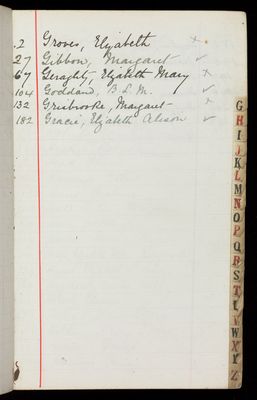 2 Groves, Elizabeth x
27 Gibbon, Margaret ✓
67 Geraghty, Elizabeth Mary x
104 Goddard, B. L. M. ✓
132 Grisbrooke, Margaret x
182 Gracie, Elizabeth Alison ✓
G
H
I
J
K
L
M
N
O
P
Q
R
S
T
U
V
W
X
Y
Z